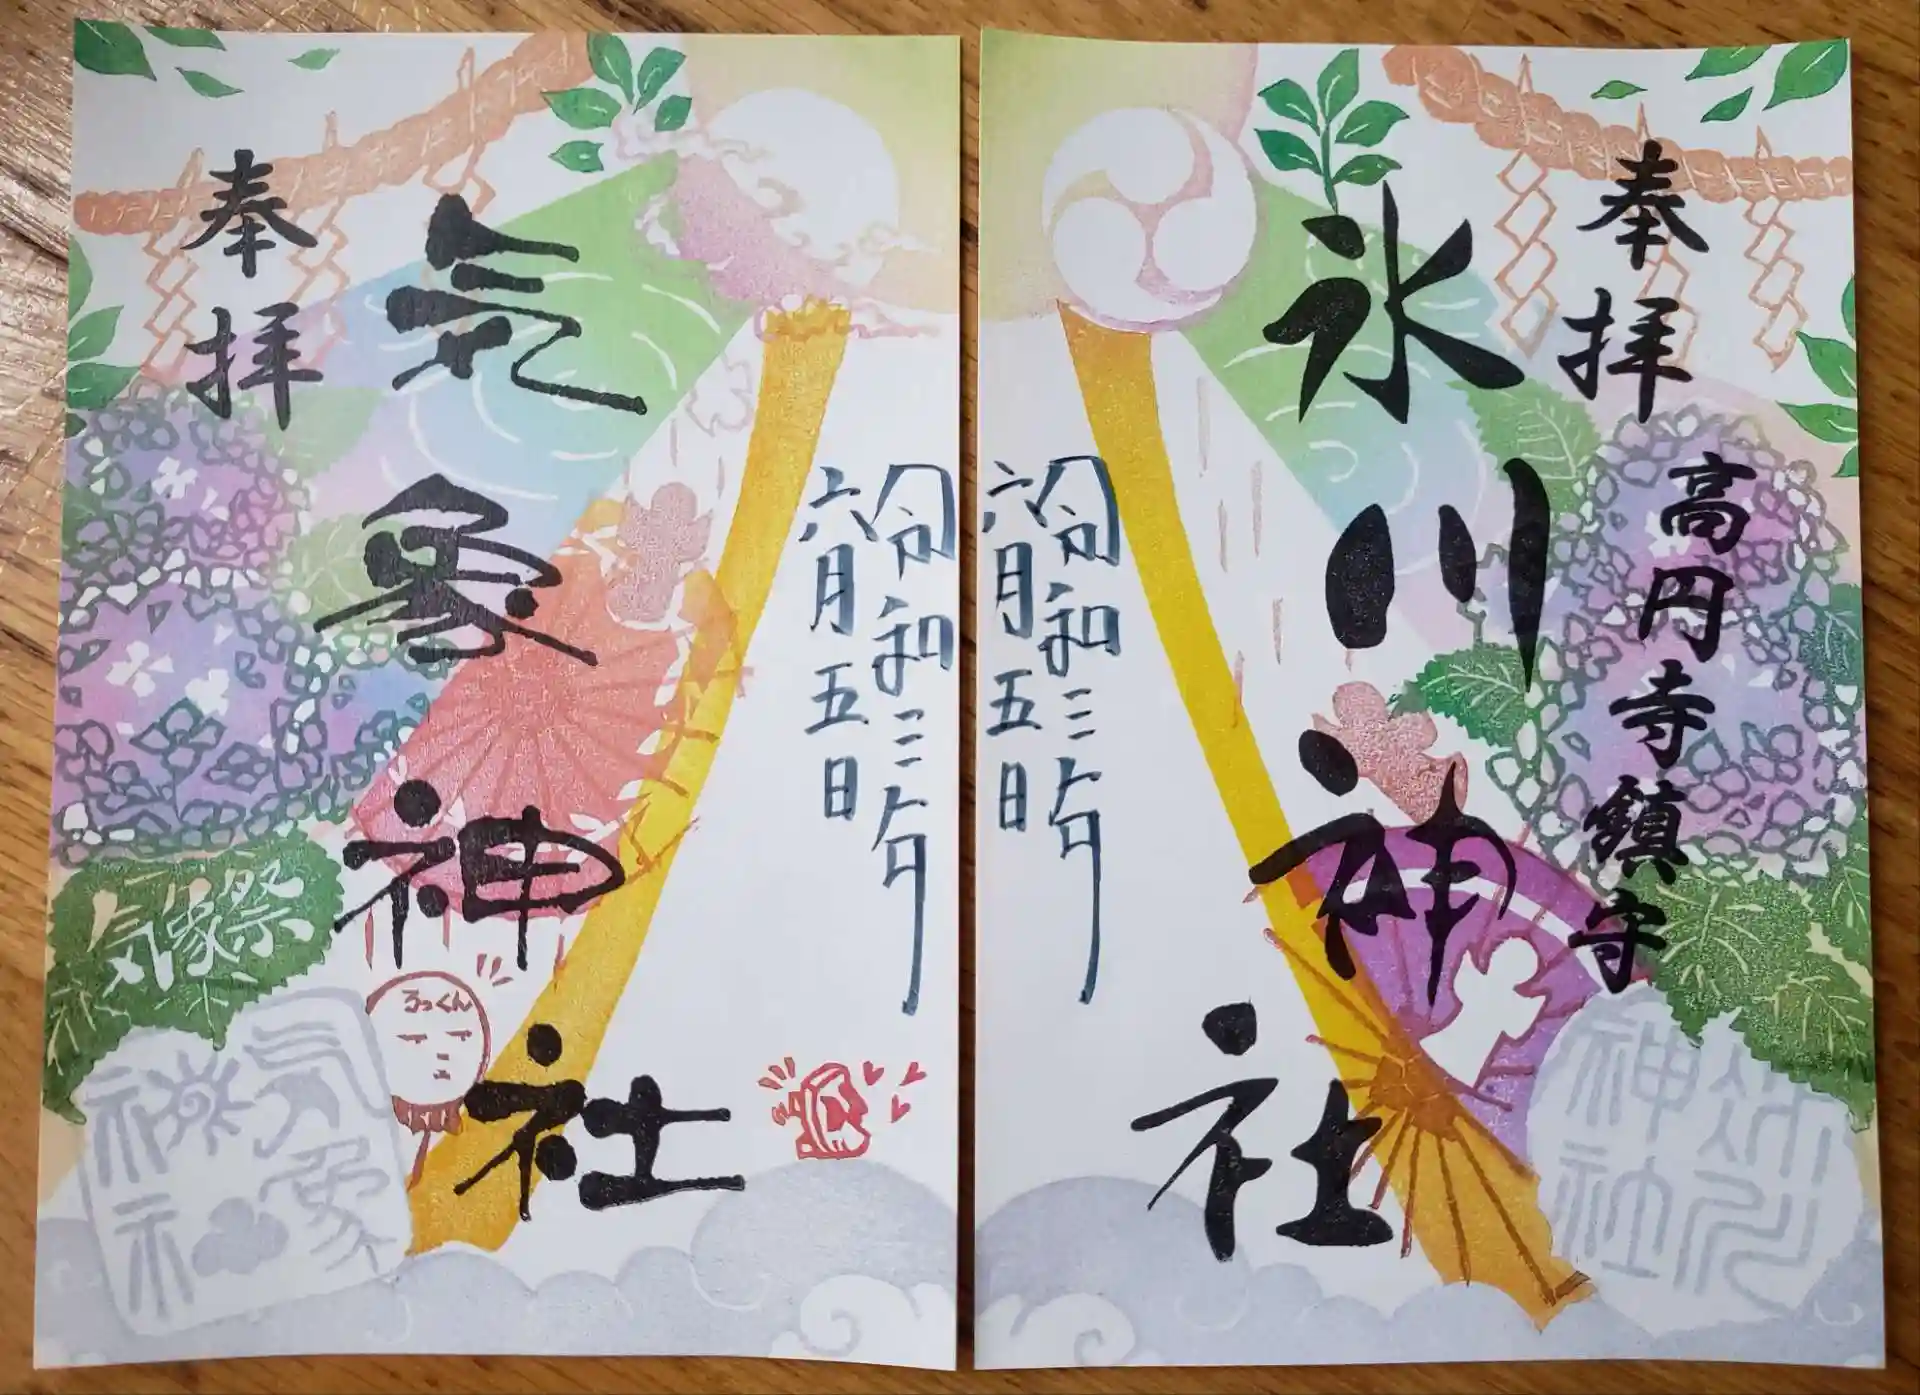 奉拝
高円寺鎮守
氷川神社
令和三年
六月五日
氷川
神社
令和三年
六月五日
気象神社
奉拝
気象祭
るっくん
気象
神社